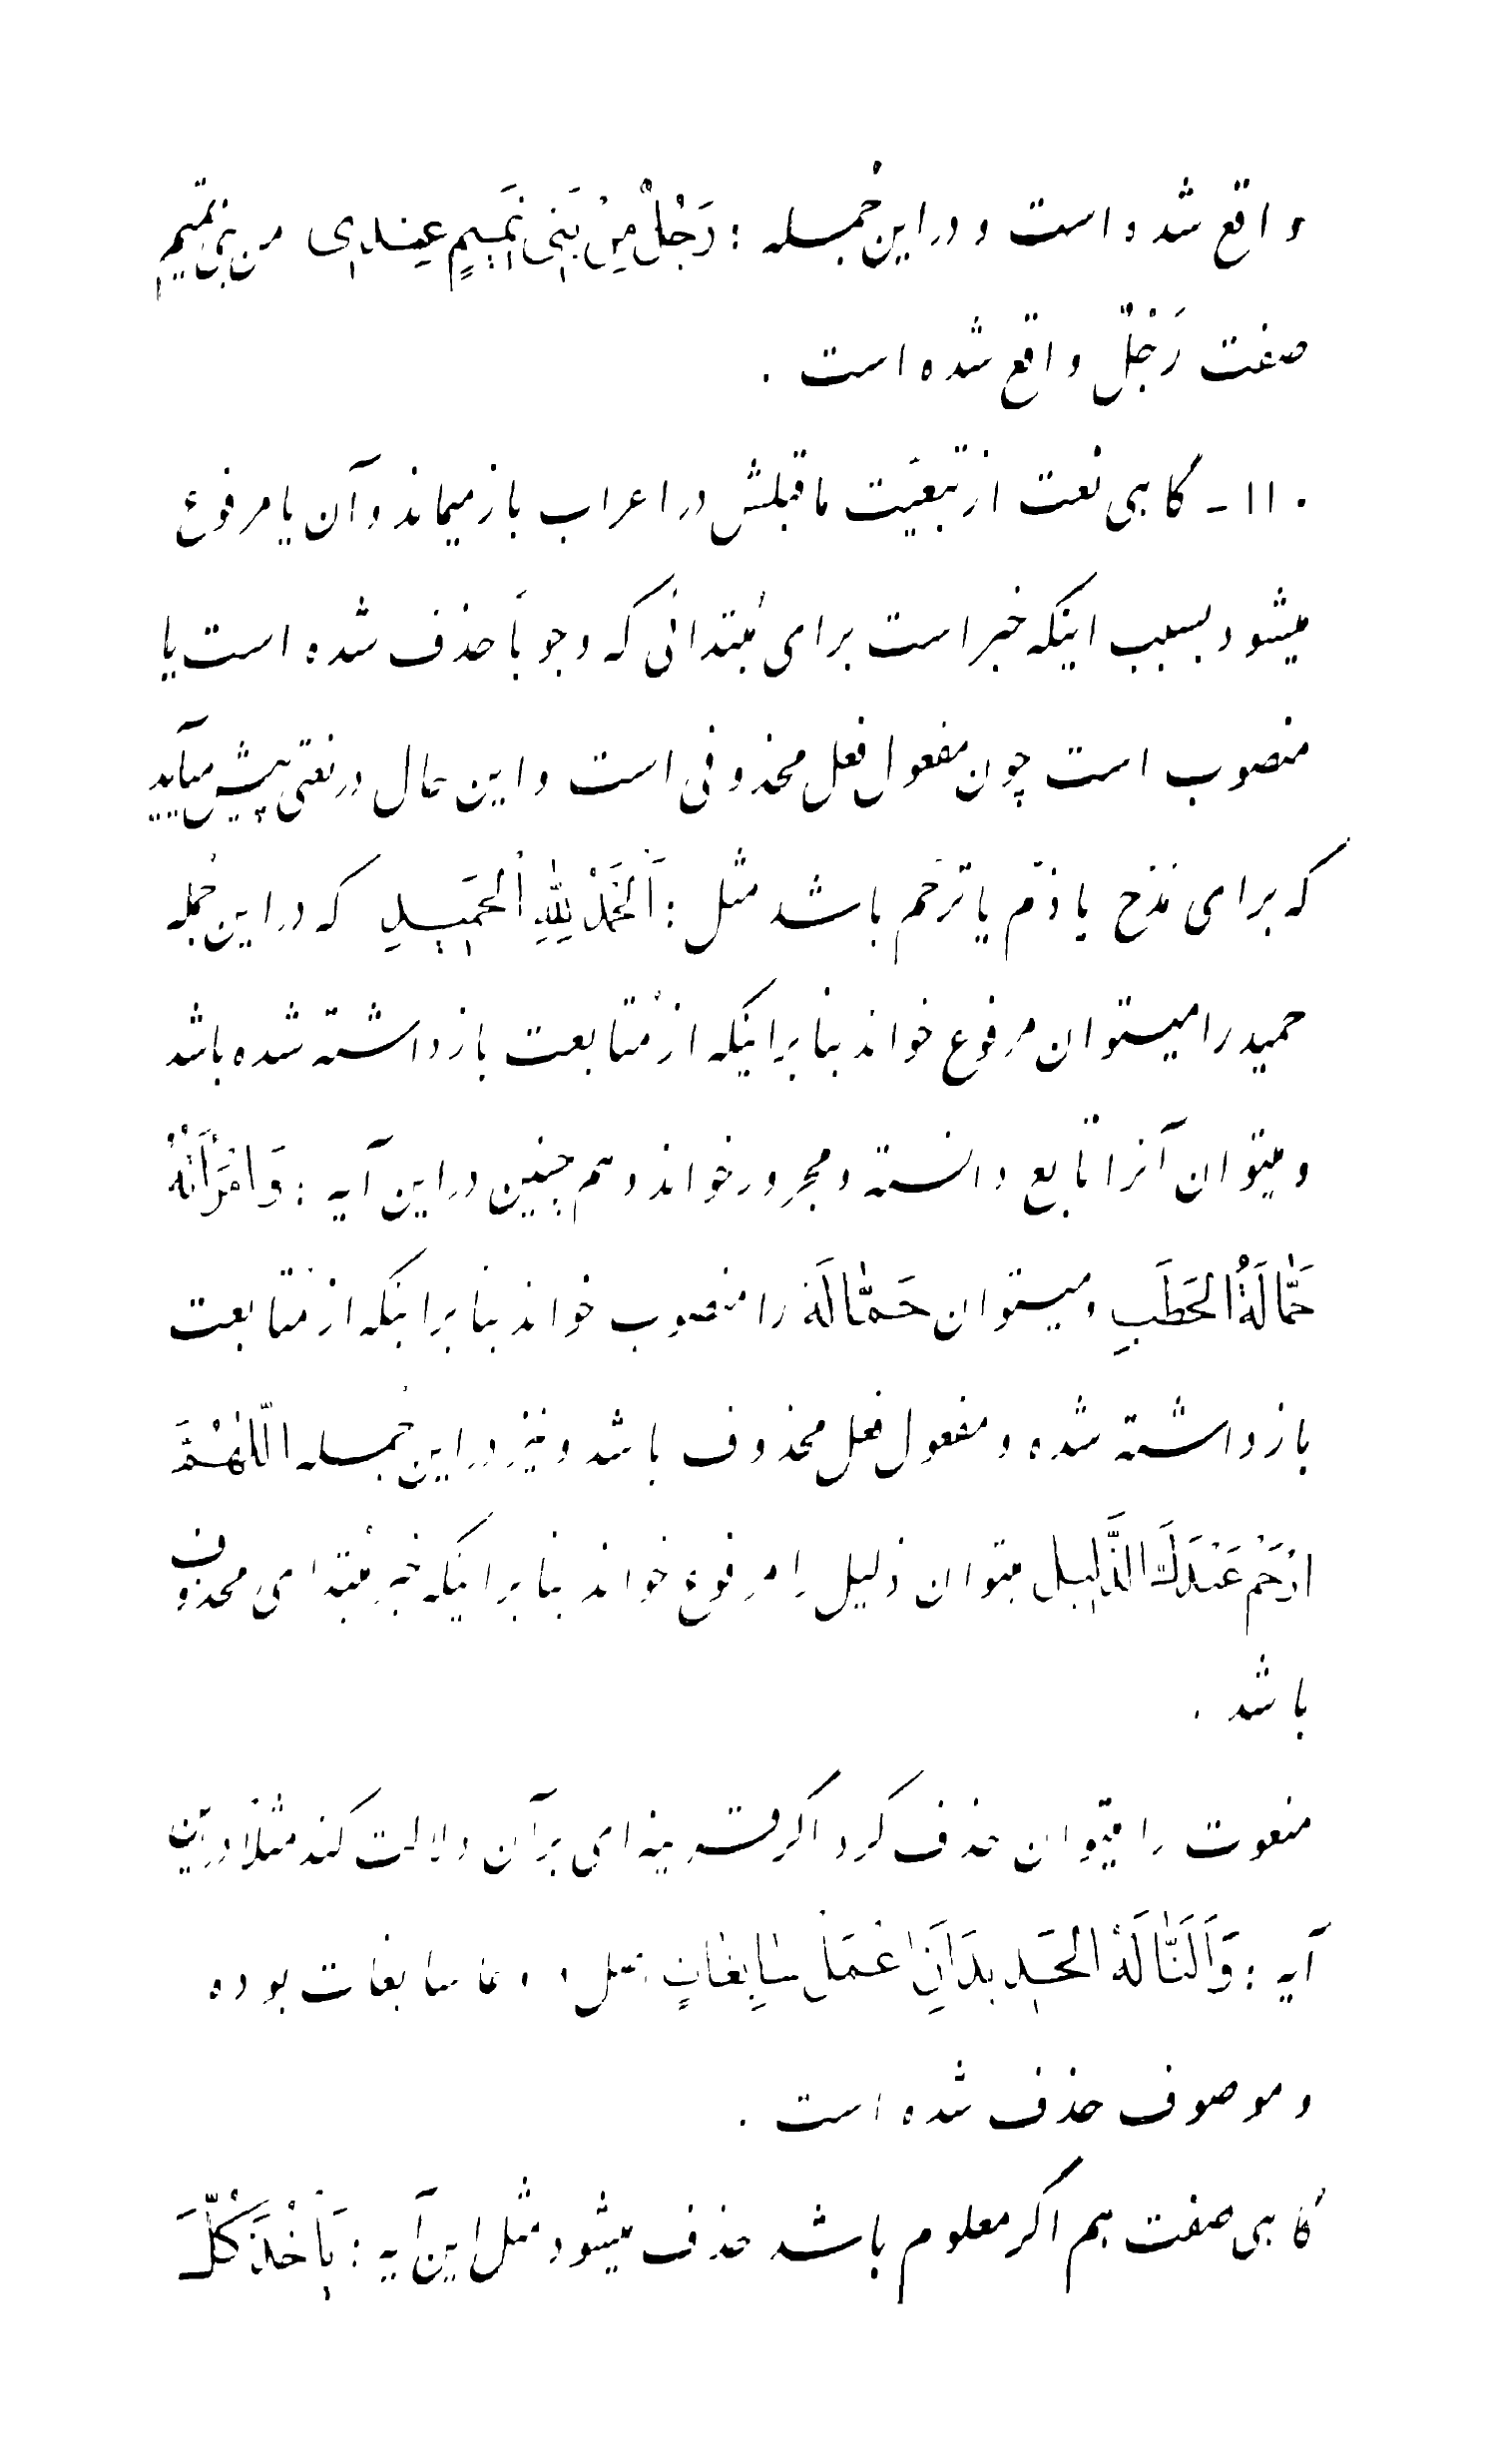 واقع شده است و در این جُمله : رَجُلٌ مِنْ بَنِی تَمِیمٍ عِنْدِی من بنی تمیم
صفت رَجُلٌ واقع شده است .
۱۱۰ - گاهی نعت از تبعیّت ماقبلش در اعراب باز میماند و آن یا مرفوع
میشود بسبب اینکه خبر است برای مُبتدائی که وجوباً حذف شده است یا
منصوب است چون مفعول فعل محذوفی است و این حال در نعتی پیش میآید
که برای مَدْح یا ذمّ یا ترحّم باشد مثل : اَلْحَمْدُ لِلّٰهِ الْحَمِیدِ که در این جُمله
حمید را میتوان مرفوع خواند بنا براینکه از مُتابعت باز داشته شده باشد
و میتوان آنرا تابع دانسته و مجرور خواند و هم چنین در این آیه : وَامْرَأَتُهُ
حَمَّالَةُ الْحَطَبِ و میتوان حَمَّالَة را منصوب خواند بنا براینکه از متابعت
باز داشته شده و مفعول فعل محذوف باشد و نیز در این جُمله اللّٰهُمَّ
ارْحَمْ عَبْدَكَ الذَّلِیلَ میتوان ذلیل را مرفوع خواند بنا براینکه خبر مُبتدای محذوف
باشد .
منعوت را میتوان حذف کرد اگر قرینه‌ای بر آن دلالت کند مثلاً در این
آیه : وَاَلَنَّا لَهُ الْحَدِیدَ اَنِ اعْمَلْ سَابِغَاتٍ سابغات بوده
و موصوف حذف شده است .
گاهی صفت هم اگر معلوم باشد حذف میشود مثل این آیه : یَأْخُذُ کُلَّ